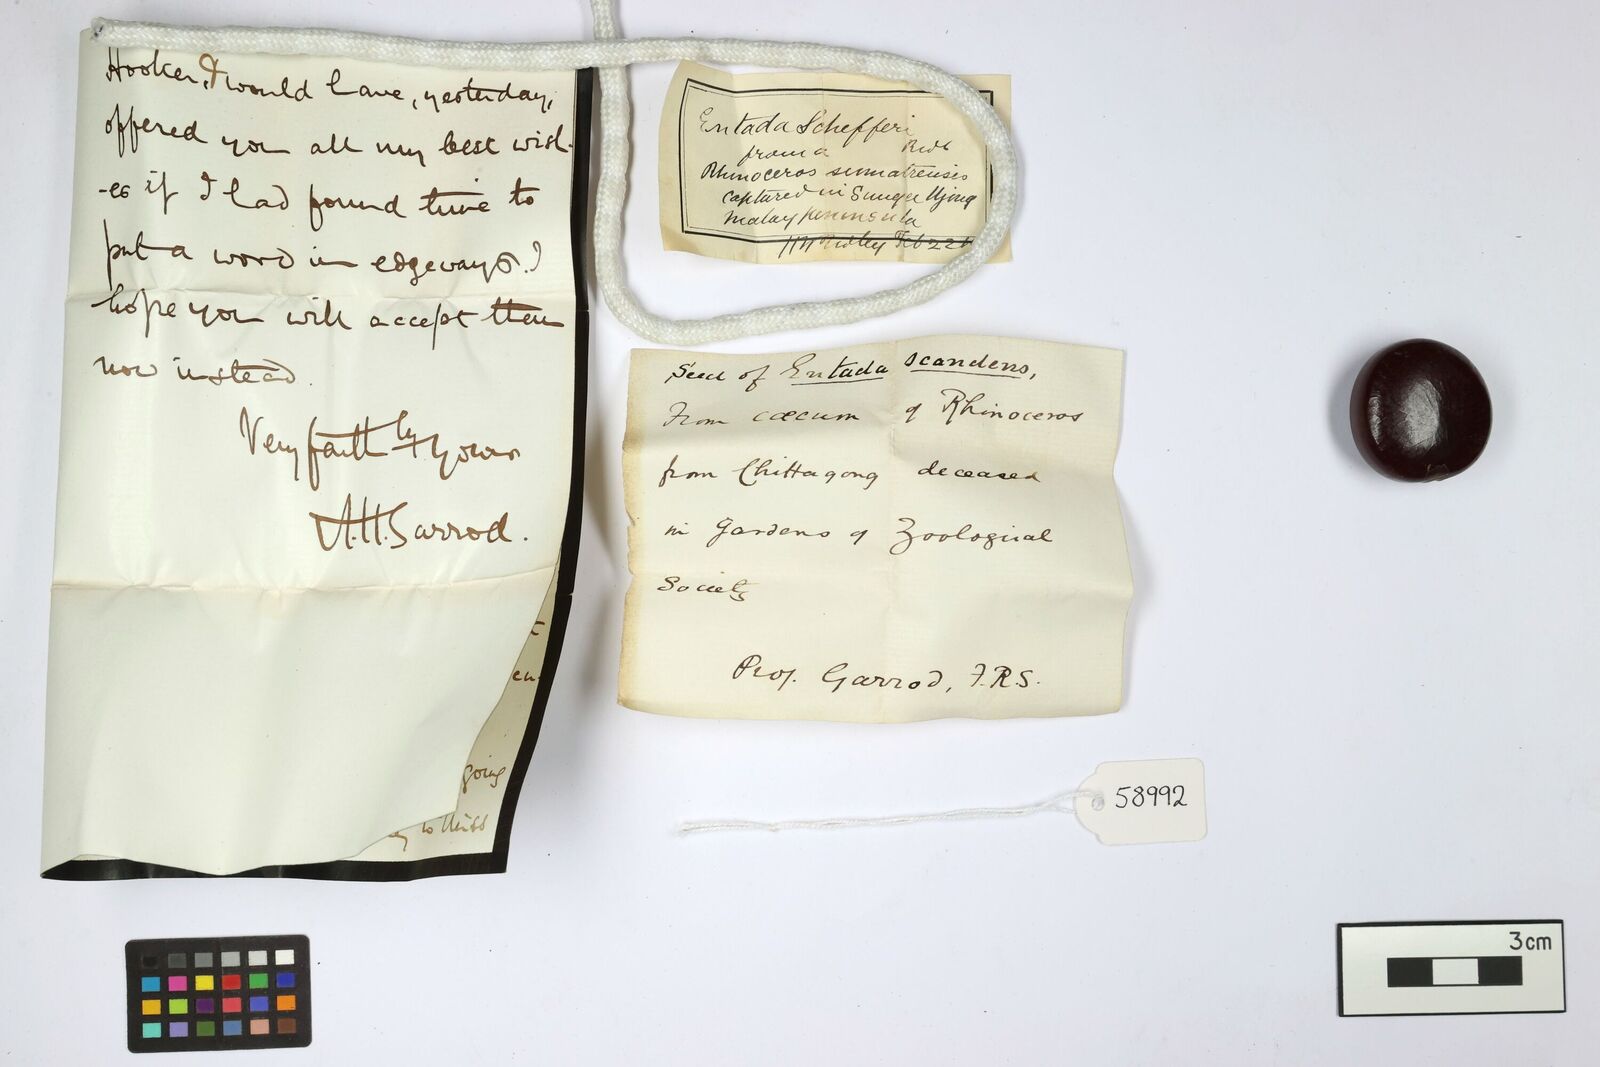 Hooker, I would have, yesterday,
offered you all my best wish-
-es if I had found time to
put a word in edgeways. I
hope you will accept them
now instead.
Very faithly yours
A.H. Garrod.
en-
going
to this
Entada Schefferi
from a Ridl
Rhinoceros sumatrensis
captured in Sungei Ujong
Malay peninsula
HN Ridley Feb 22
Seed of Entada scandens,
From cæcum of Rhinoceros
from Chittagong deceased
in Gardens of Zoological
Society
Prof. Garrod, F.R.S.
58992
3cm